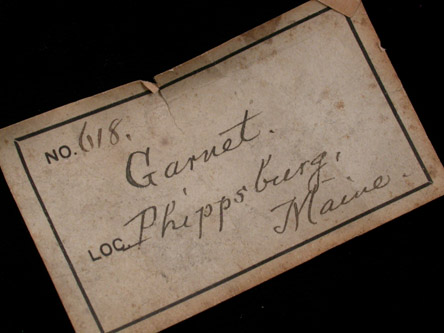 NO. 618.
Garnet.
LOC. Phippsburg,
Maine.